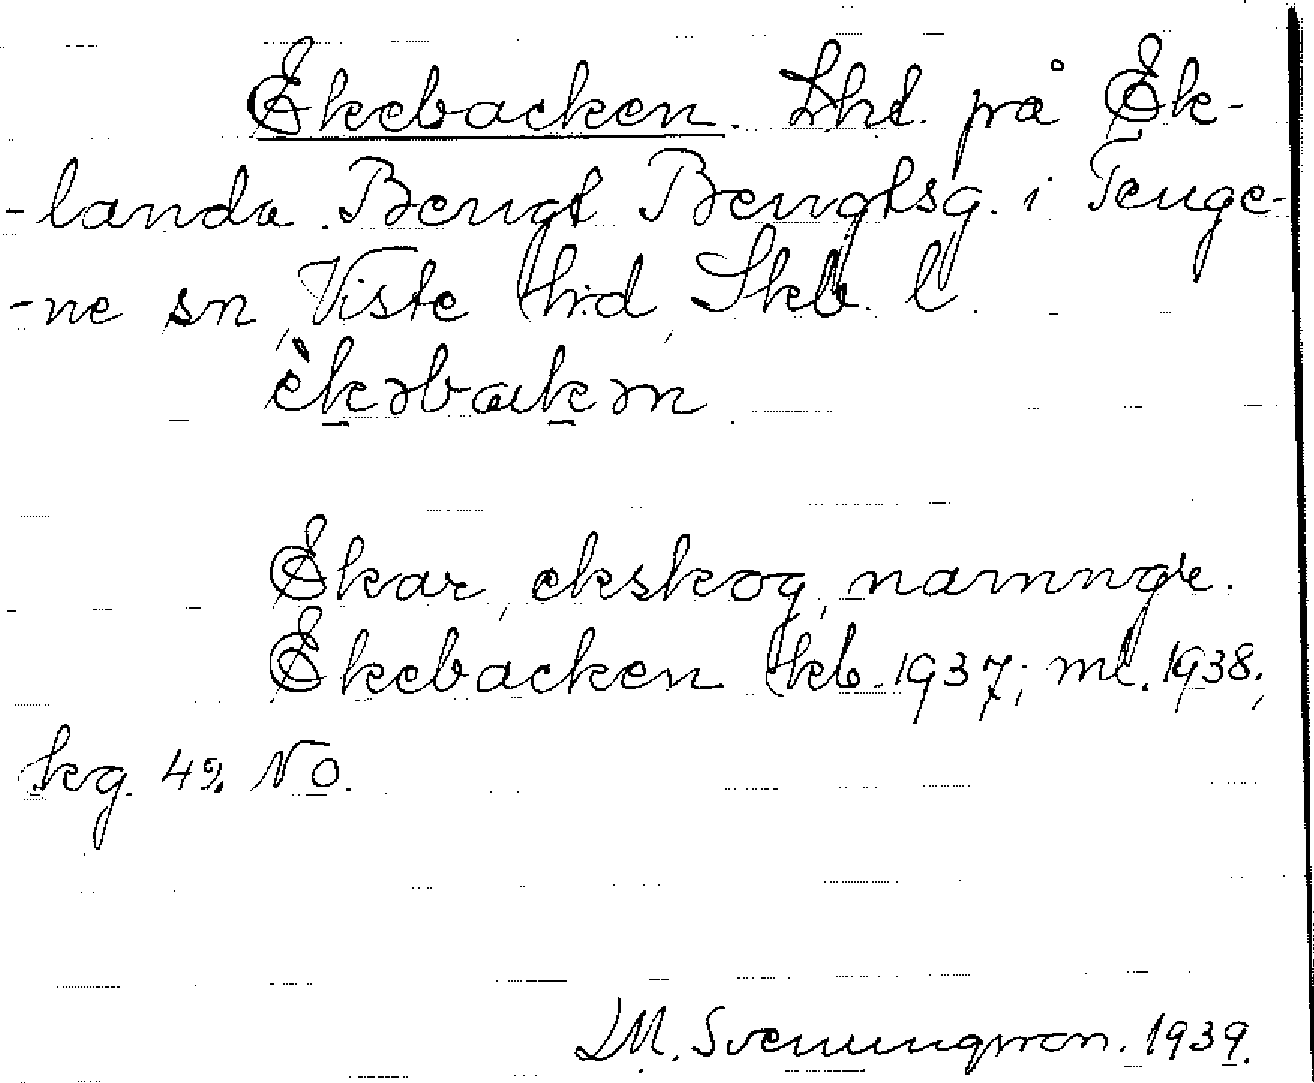 Ekebacken. Lht. på Ek-
-landa Bengt Bengtsg. i Tenge-
-ne sn, Viste hrd, Skb. l.
èkəbackən.
Ekar, ekskog, namngr.
Ekebacken kb. 1937; ml. 1938;
kg. 49. NO.
LM. Svenungsson. 1939.